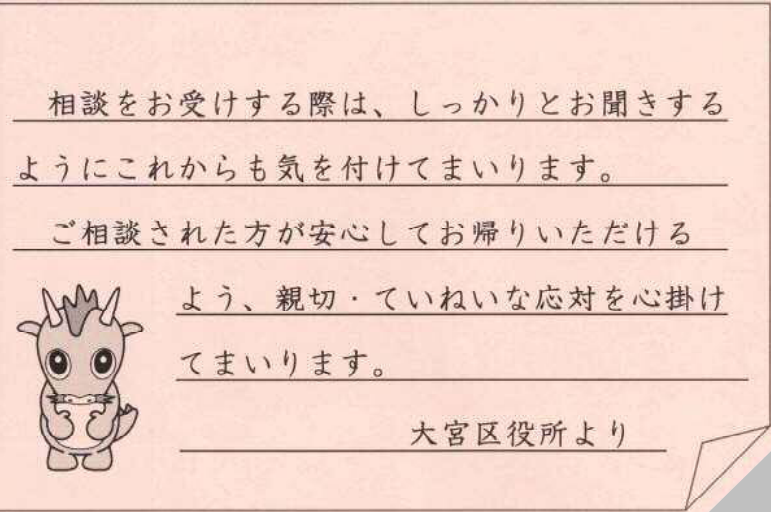 相談をお受けする際は、しっかりとお聞きする
ようにこれからも気を付けてまいります。
ご相談された方が安心してお帰りいただける
よう、親切・ていねいな応対を心掛け
てまいります。
大宮区役所より